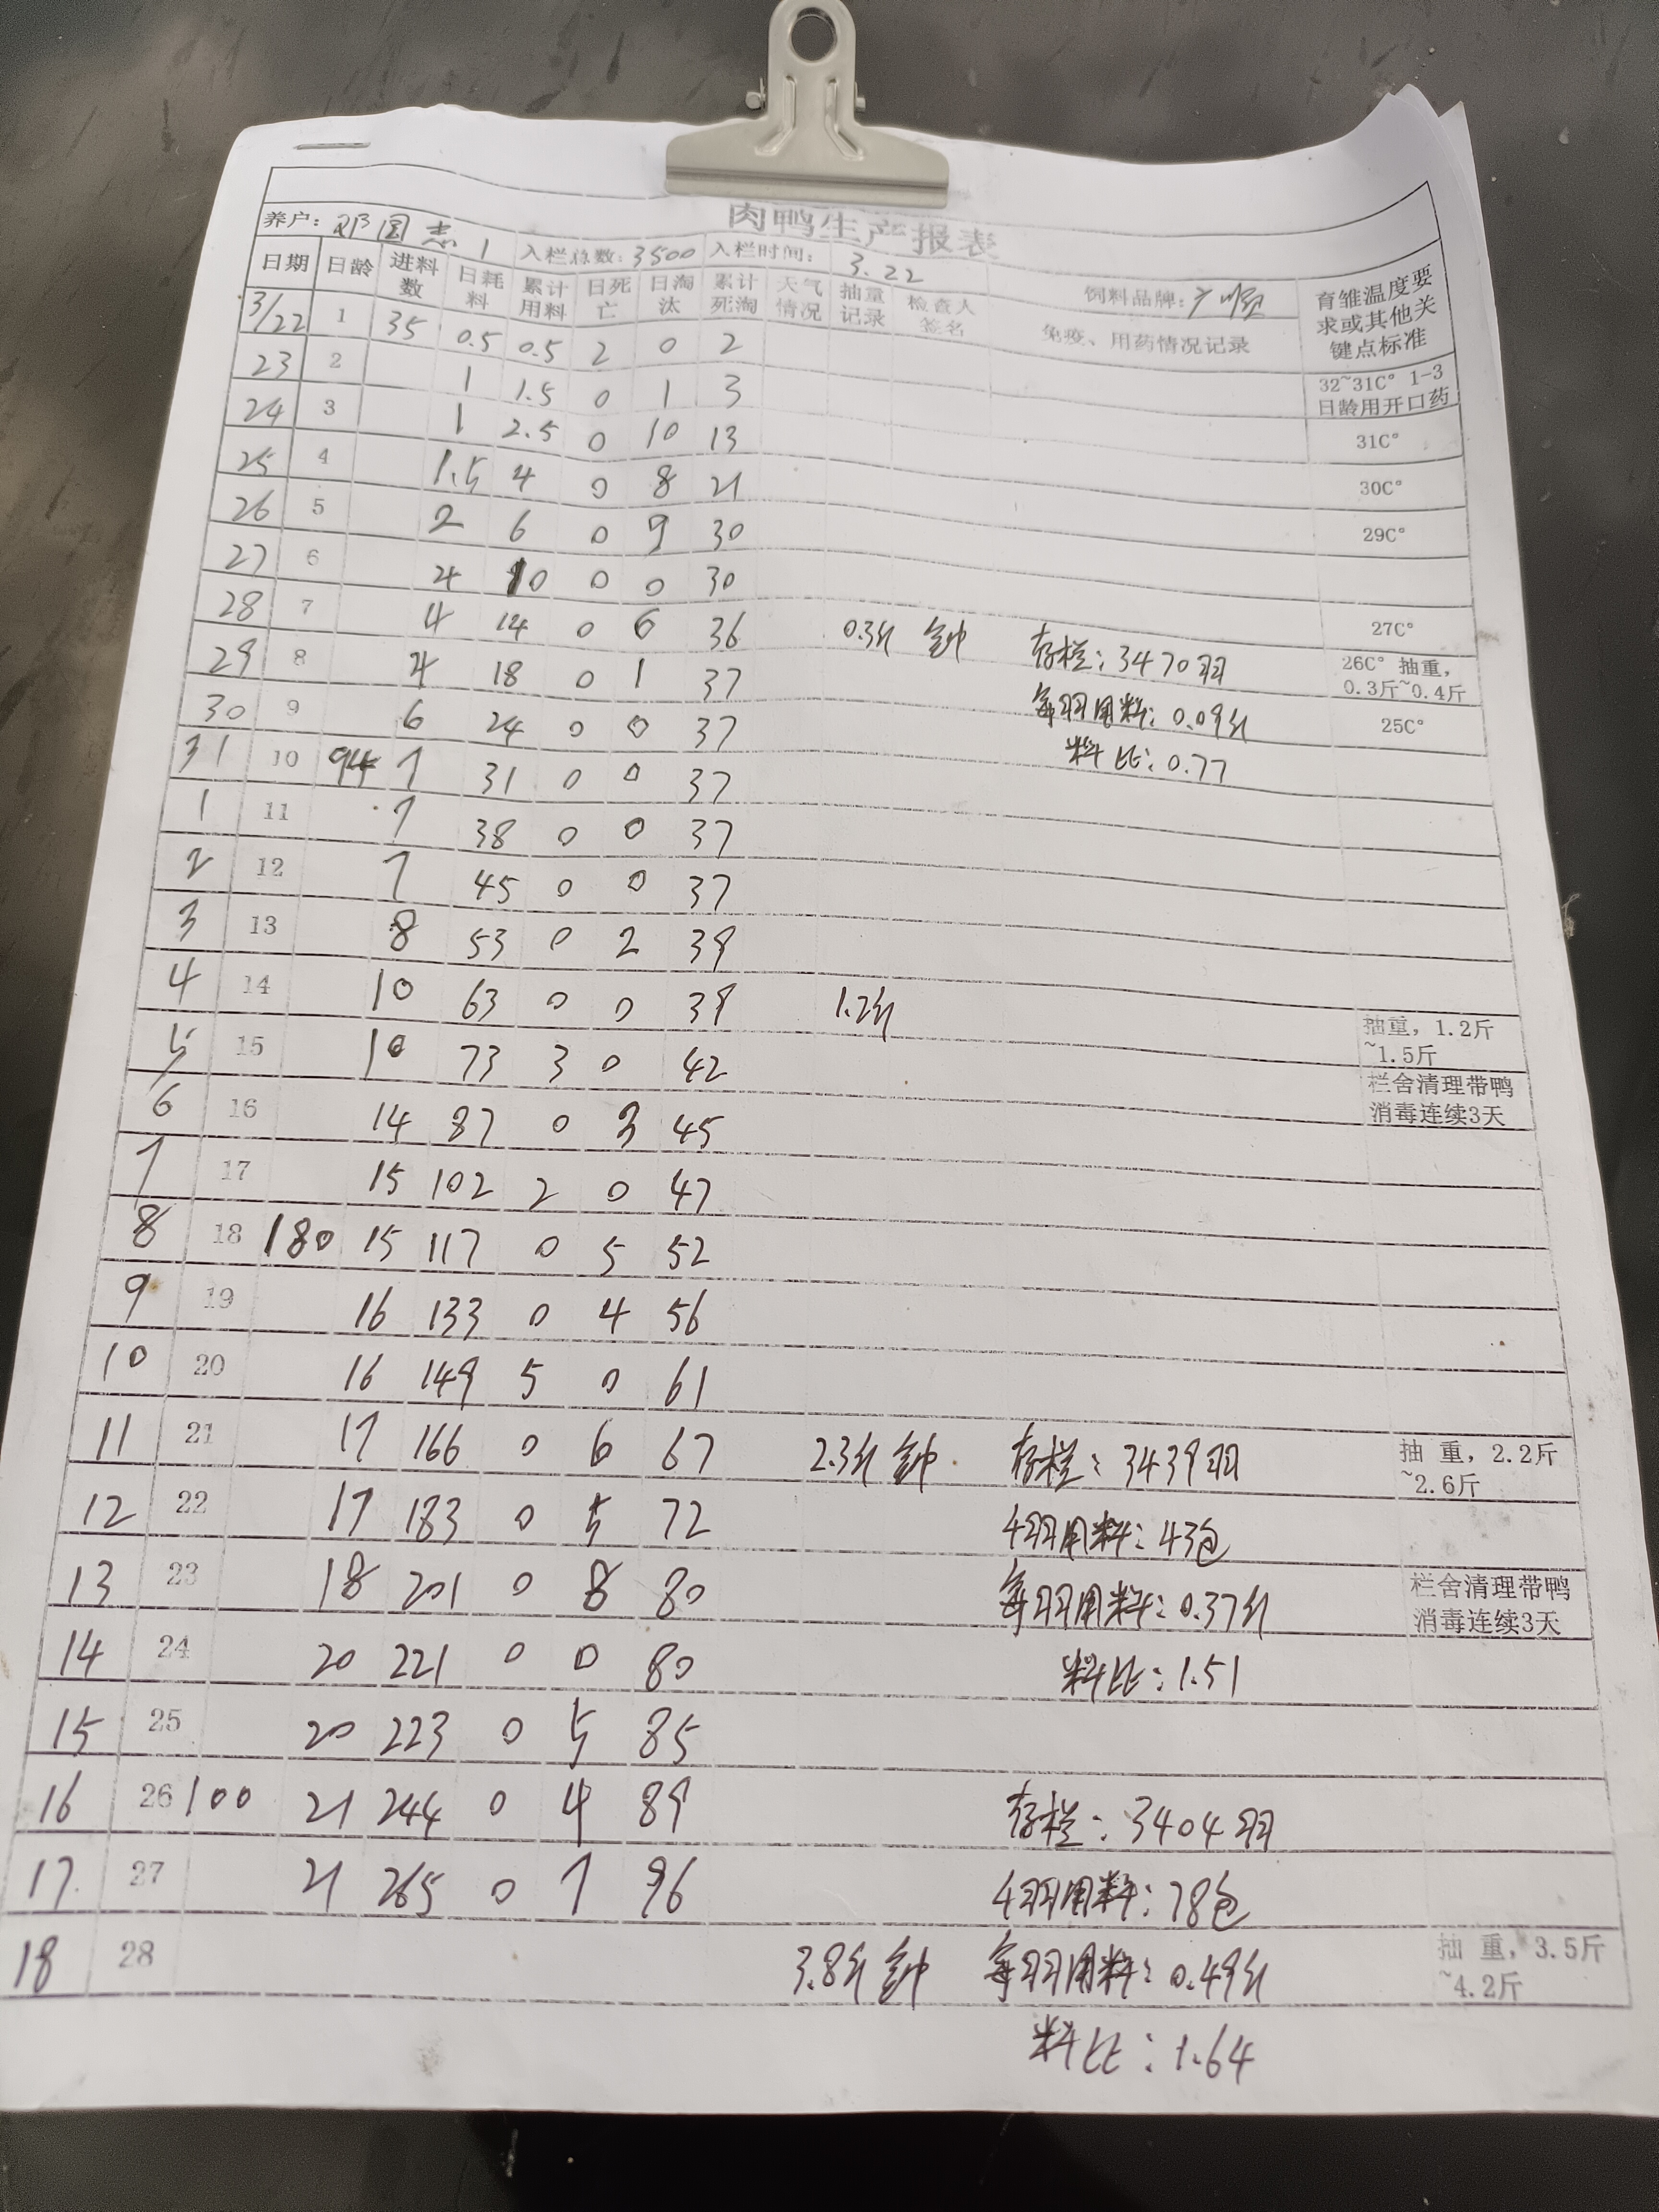 肉鸭生产报表
养户: 邓圆志 1 入栏总数: 3500 入栏时间: 3.22 饲料品牌: 广顺
日期 日龄 进料数 日耗料 累计用料 日死亡 日淘汰 累计死淘 天气情况 抽量记录 检查人签名 免疫、用药情况记录 育雏温度要求或其他关键点标准
3/22 1 35 0.5 0.5 2 0 2
23 2 1 1.5 0 1 3 32~31C° 1-3日龄用开口药
24 3 1 2.5 0 10 13 31C°
25 4 1.5 4 0 8 21 30C°
26 5 2 6 0 9 30 29C°
27 6 4 10 0 0 30
28 7 4 14 0 6 36 0.3斤 钟 存栏: 3470羽 27C°
29 8 4 18 0 1 37 每羽用料: 0.09斤 26C° 抽重, 0.3斤~0.4斤
30 9 6 24 0 0 37 料比: 0.77 25C°
31 10 94 7 31 0 0 37
1 11 7 38 0 0 37
2 12 7 45 0 0 37
3 13 8 53 0 2 39
4 14 10 63 0 0 39 1.2斤 抽重, 1.2斤~1.5斤
5 15 10 73 3 0 42 栏舍清理带鸭消毒连续3天
6 16 14 87 0 3 45
7 17 15 102 2 0 47
8 18 180 15 117 0 5 52
9 19 16 133 0 4 56
10 20 16 149 5 0 61
11 21 17 166 0 6 67 2.3斤 钟 存栏: 3439羽 抽 重, 2.2斤~2.6斤
12 22 17 183 0 5 72 4羽用料: 43包
13 23 18 201 0 8 80 每羽用料: 0.37斤 栏舍清理带鸭消毒连续3天
14 24 20 221 0 0 80 料比: 1.51
15 25 20 223 0 5 85
16 26 100 21 244 0 4 89 存栏: 3404羽
17 27 21 265 0 7 96 4羽用料: 78包
18 28 3.8斤 钟 每羽用料: 0.49斤 抽 重, 3.5斤~4.2斤
料比: 1.64